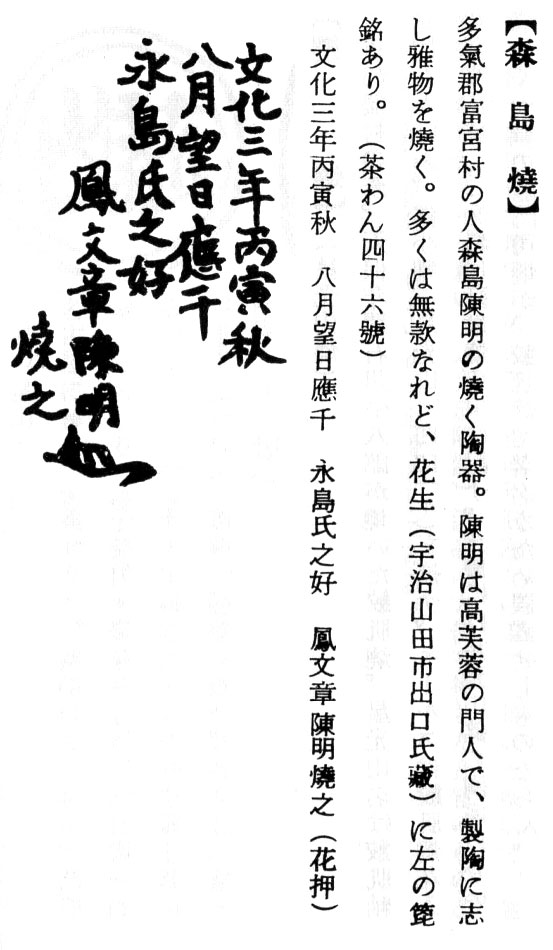 【森島燒】
多氣郡富宮村の人森島陳明の燒く陶器。陳明は高芙蓉の門人で、製陶に志
し雅物を燒く。多くは無款なれど、花生（宇治山田市出口氏藏）に左の箆
銘あり。（茶わん四十六號）
文化三年丙寅秋　八月望日應千　永島氏之好　鳳文章陳明燒之（花押）
文化三年丙寅秋
八月望日應千
永島氏之好
鳳文章陳明
燒之